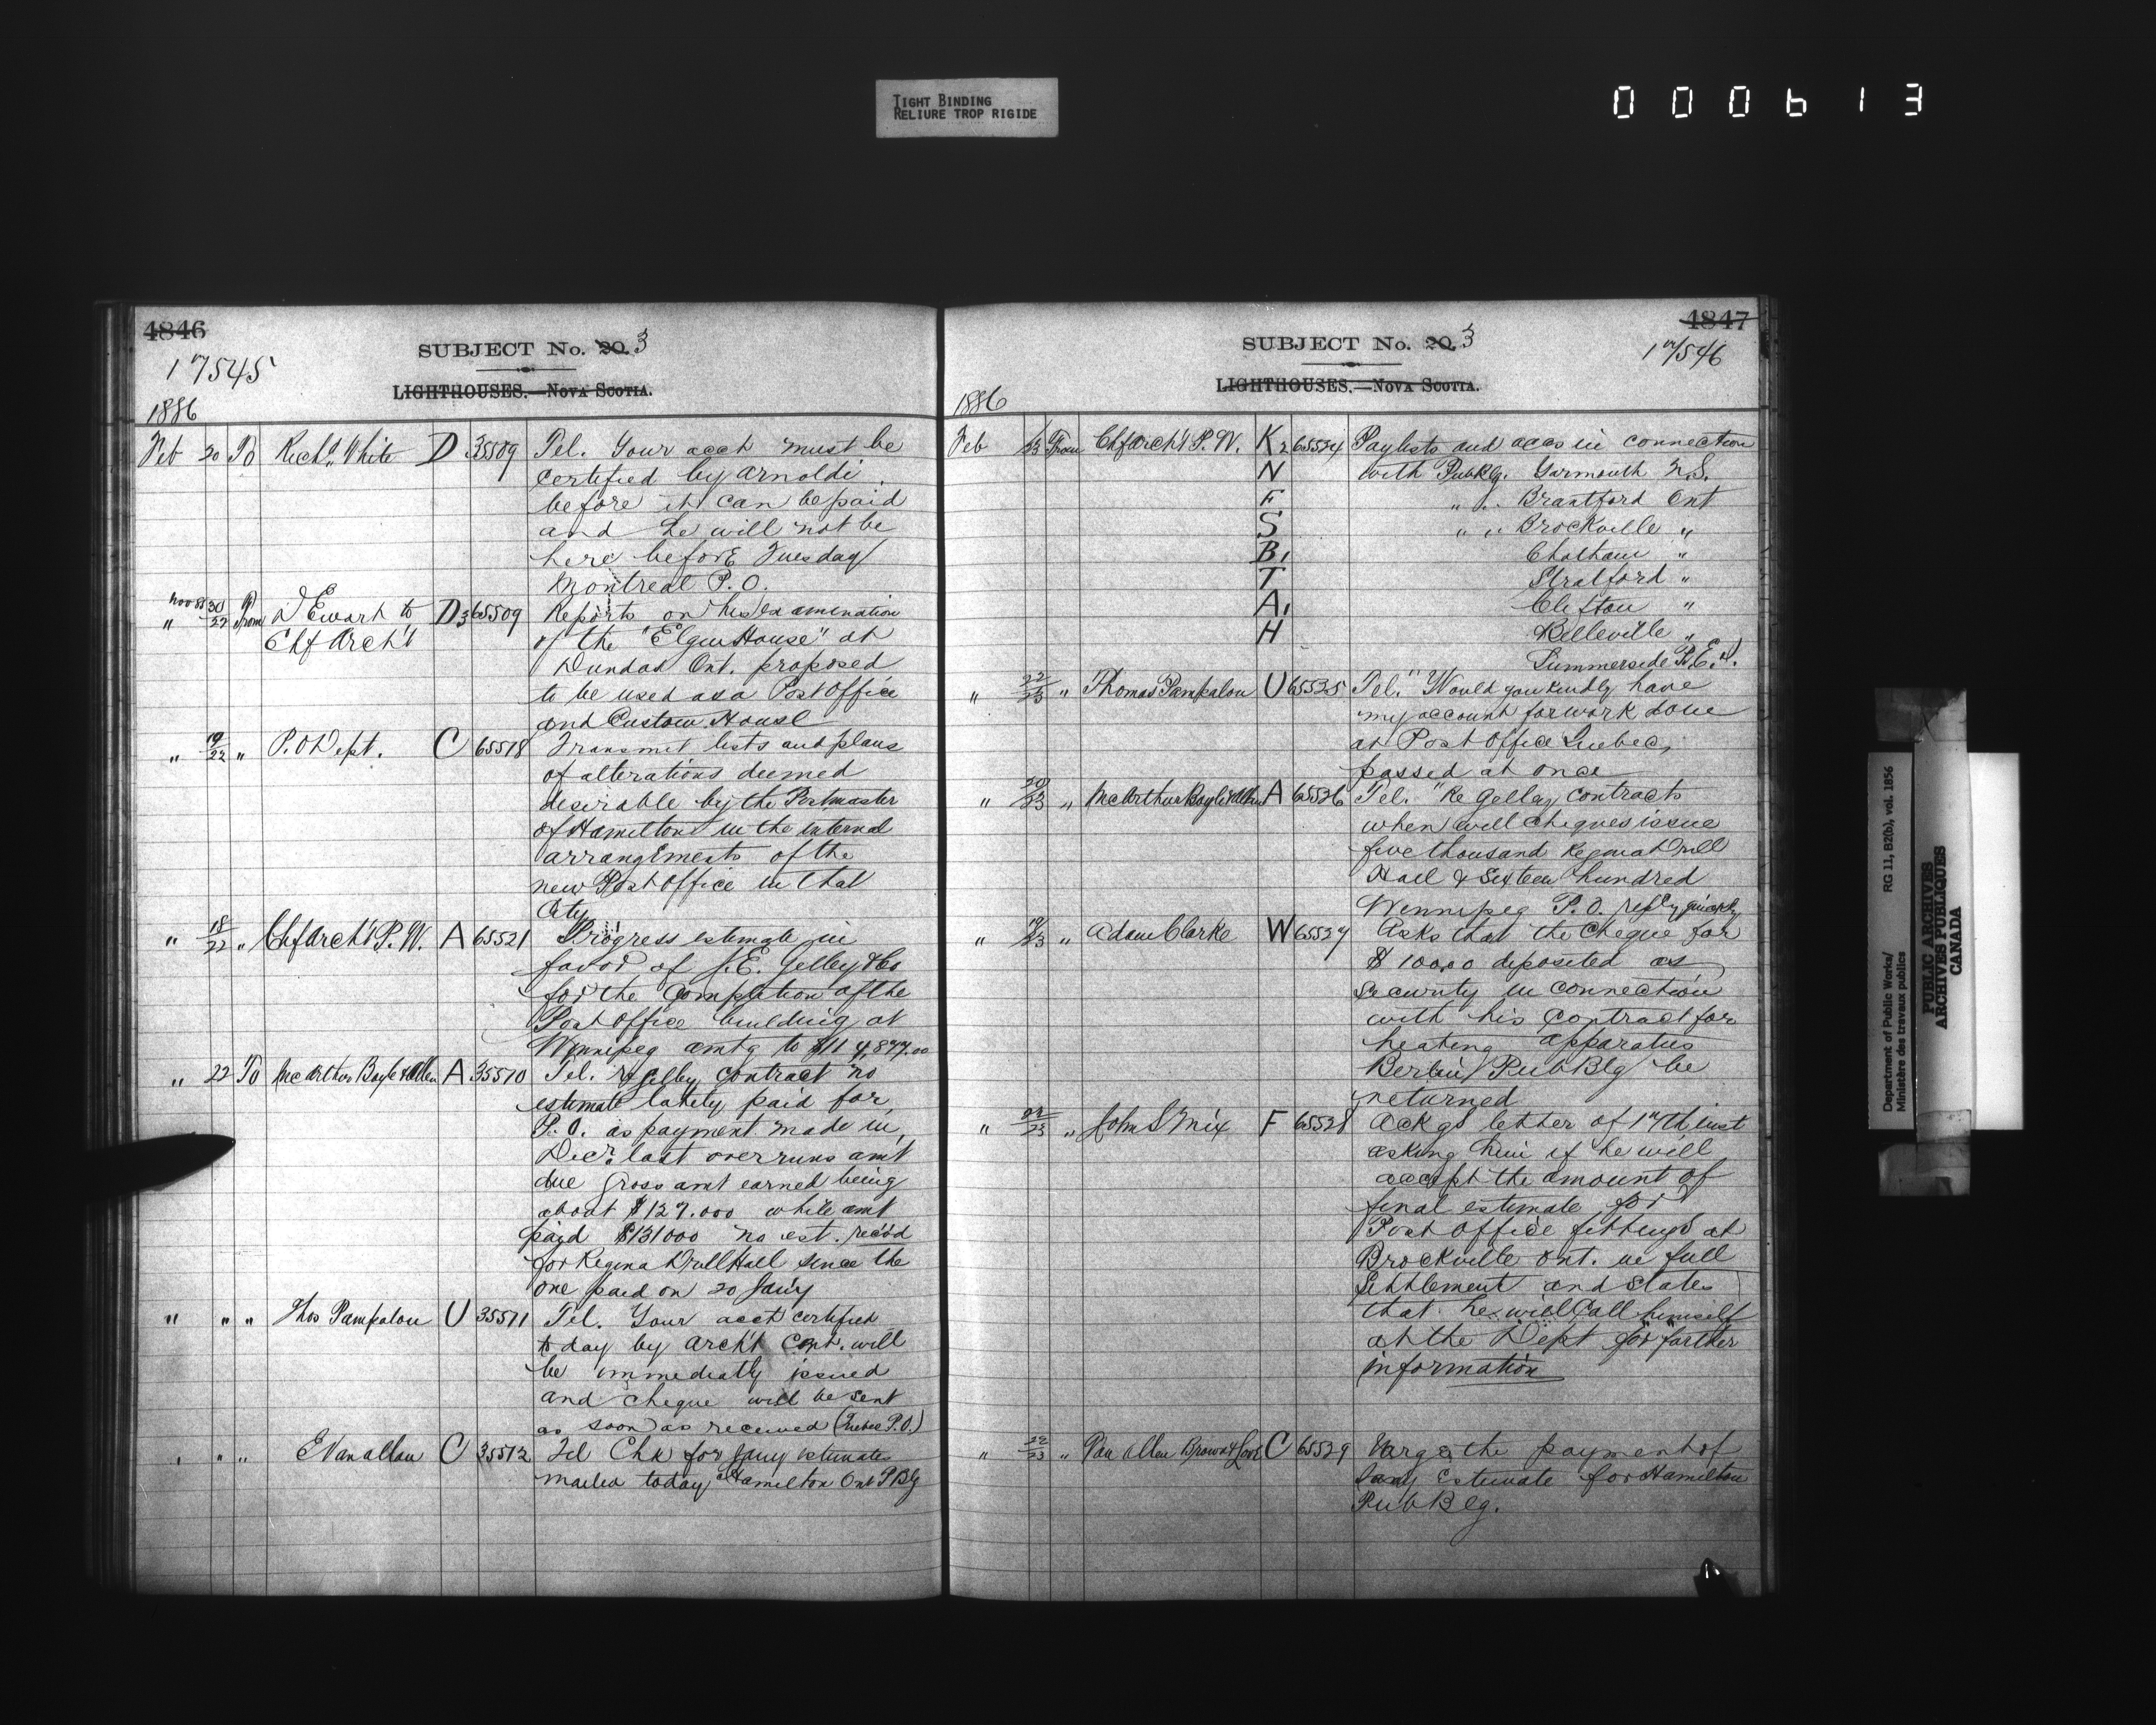 TIGHT BINDING
RELIURE TROP RIGIDE
000613
4846
SUBJECT No. 20. 3
17545
LIGHTHOUSES.—NOVA SCOTIA.
1886
Feb 20 To Richd. White D 35509 Tel. Your acct must be
certified by Arnoldi
before it can be paid
and he will not be
here before Tuesday
Montreal P.O.
" Nov 85 30/22 From D Ewart to D3 65509 Reports on his examination
Chf Archt of the "Elgin House" at
Dundas Ont. proposed
to be used as a Post Office
and Custom House
" 19/22 " P.O Dept. C 65518 Transmit lists and plans
of alterations deemed
desirable by the Postmaster
of Hamilton in the internal
arrangements of the
new Post Office in that
City
" 18/22 " Chf Archt P.W. A 65521 Progress estimate in
favor of J.E. Gelley & Co
for the Completion of the
Post Office building at
Winnipeg amtg to
" 22 To McArthur Boyle & Allen A 35510 Tel. re Gelley contract no
estimate lately paid for
P.O. as payment made in
Decr. last overruns amt
due Gross amt earned being
about $127.000 while amt
paid $131000 no est. rec'd
for Regina Drill Hall since the
one paid on 20 Jan'y
" " " Thos Pampalon U 35511 Tel. Your acct certified
to day by Archt Cert. will
be immediatly issued
and cheque will be sent
as soon as received (Quebec P.O.)
" " " E Vanallan C 35512 Tel Chk for Jany estimates
mailed today Hamilton Ont P Blg
4847
SUBJECT No. 20. 3
17546
LIGHTHOUSES.—NOVA SCOTIA.
1886
Feb /23 From Chf Archt P.W. K2 65524 Paylists and accs in connection
N with Pub Blg. Yarmouth N.S.
F " " Brantford Ont
S " " Brockville "
B1 Chatham "
T Stratford "
A1 Clifton "
H Belleville "
Summerside P.E.I.
" 22/23 " Thomas Pampalon U 65525 Tel. "Would you kindly have
my account for work done
at Post Office Quebec,
passed at once
" 20/23 " McArthur Boyle & Allen A 65526 Tel. "Re Gelley contracts
when will cheques issue
five thousand Regina Drill
Hall & Sixteen hundred
Winnipeg P.O. reply quickly
" 19/23 " Adam Clarke W 65527 Asks that the Cheque for
$ 1000.0 deposited as
security in connection
with his Contract for
heating apparatus
Berlin Pub Blg be
returned
" 22/23 " John S Mix F 65528 Ackgs letter of 17th inst
asking him if he will
accept the amount of
final estimate for
Post Office fittings at
Brockville Ont. in full
Settlement and States
that he will Call himself
at the Dept for farther
information
" 22/23 " Van Allen Brown & C 65529 Urge the payment of
Jany Estimate for Hamilton
Pub Blg.
Department of Public Works/
Ministère des travaux publics
RG 11, B2(b), vol. 1856
PUBLIC ARCHIVES
ARCHIVES PUBLIQUES
CANADA